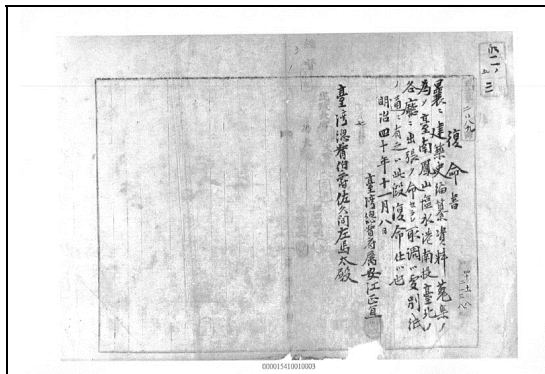 復命書
曩ニ建築史編纂資料蒐集ノ
為ノ臺南鳳山塩水港南投臺北ノ
各廳ニ出張ノ命セラレ取調ノ處別紙
ノ通ニ有之候此段復命仕候也
明治四十年十一月八日
臺湾総督府属安江正直
臺湾総督伯爵佐久間左馬太殿
000015410010003